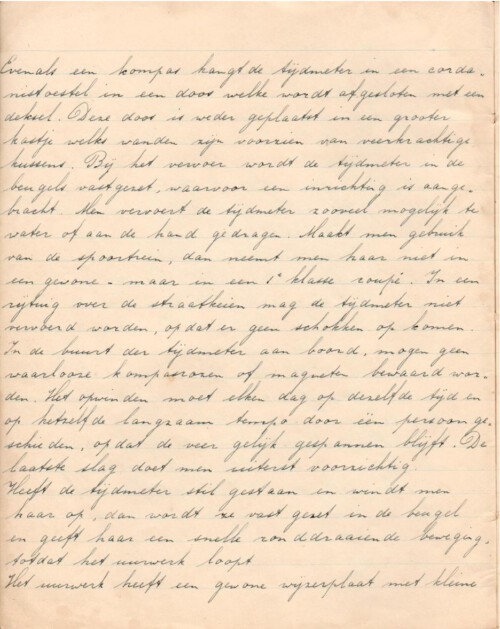 Evenals een kompas hangt de tijdmeter in een corda-
nistoestel in een doos welke wordt afgesloten met een
deksel. Deze doos is weder geplaatst in een grooter
kastje welks wanden zijn voorzien van veerkrachtige
kussens. Bij het vervoer wordt de tijdmeter in de
beugels vastgezet, waarvoor een inrichting is aange-
bracht. Men vervoert de tijdmeter zooveel mogelijk te
water of aan de hand gedragen. Maakt men gebruik
van de spoortrein, dan neemt men haar niet in
een gewone - maar in een 1e klasse coupé. In een
rijtuig over de straatkeien mag de tijdmeter niet
vervoerd worden, opdat er geen schokken op komen.
In de buurt der tijdmeter aan boord, mogen geen
waarlooze kompasrozen of magneten bewaard wor-
den. Het opwinden moet elken dag op dezelfde tijd en
op hetzelfde langzaam tempo door één persoon ge-
schieden, opdat de veer gelijk gespannen blijft. De
laatste slag doet men uiterst voorzichtig.
Heeft de tijdmeter stil gestaan en windt men
haar op, dan wordt ze vast gezet in de beugel
en geeft haar een snelle ronddraaiende beweging,
totdat het uurwerk loopt
Het uurwerk heeft een gewone wijzerplaat met kleine